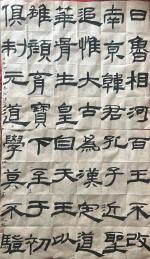 曰魯相河百王不改
南京韓君孔子近聖
追惟大古為漢定道
華胥生皇自天王以
雄顏育寶下至于初
俱制元道學莫不